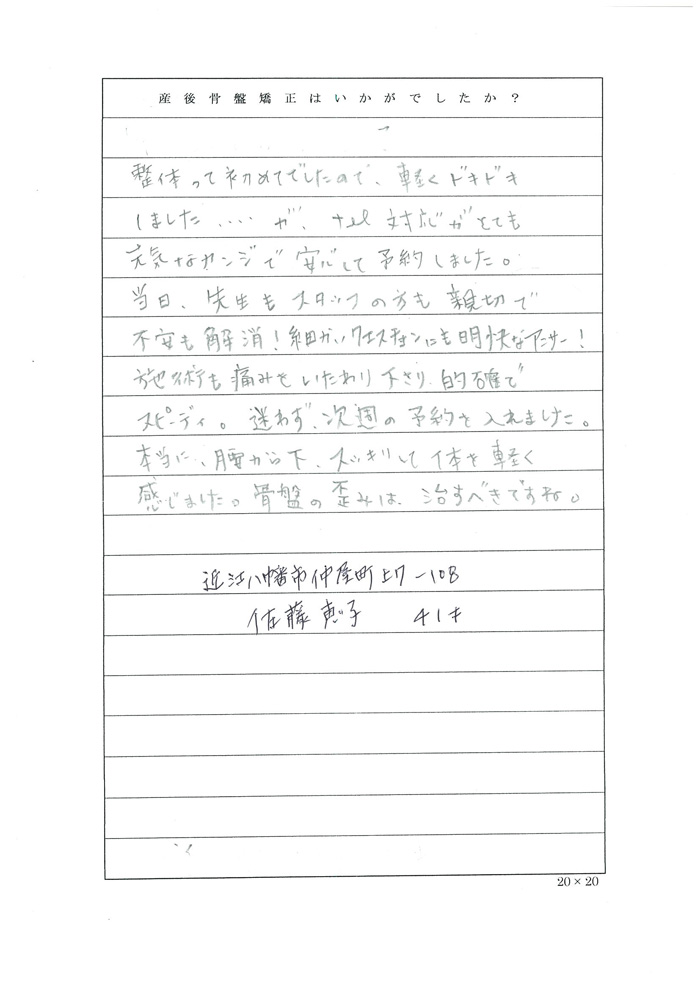 産後骨盤矯正はいかがでしたか？
整体って初めてでしたので、軽くドキドキ
しました‥‥が、tel対応がとても
元気なカンジで安心して予約しました。
当日、先生もスタッフの方も親切で
不安も解消！細かいクエスチョンにも明快なアンサー！
施術も痛みをいたわり下さり、的確で
スピーディ。迷わず、次週の予約を入れました。
本当に、腰から下、スッキリして体を軽く
感じました。骨盤の歪みは、治すべきですね。
近江八幡市仲屋町上7-108
佐藤恵子 41才
20×20